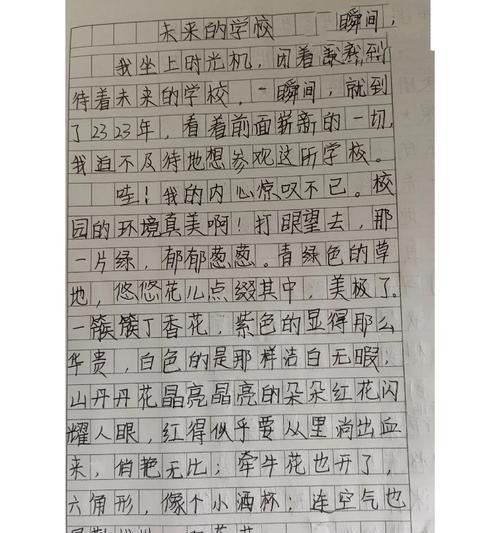 未来的学校 一瞬间，
我坐上时光机，闭着
待着未来的学校，一瞬间，就到
了2323年，看着前面崭新的一切，
我迫不及待地想参观这所学校。
哇！我的内心惊叹不已。校
园的环境真美啊！打眼望去，那
一片绿，郁郁葱葱。青绿色的草
地，悠悠花儿点缀其中，美极了。
一簇簇丁香花，紫色的显得那么
华贵，白色的是那样洁白无暇；
山丹丹花晶亮晶亮的朵朵红花闪
耀人眼，红得似乎要从里淌出血
来，俏艳无比；牵牛花也开了，
六角形，像个小酒杯；连空气也